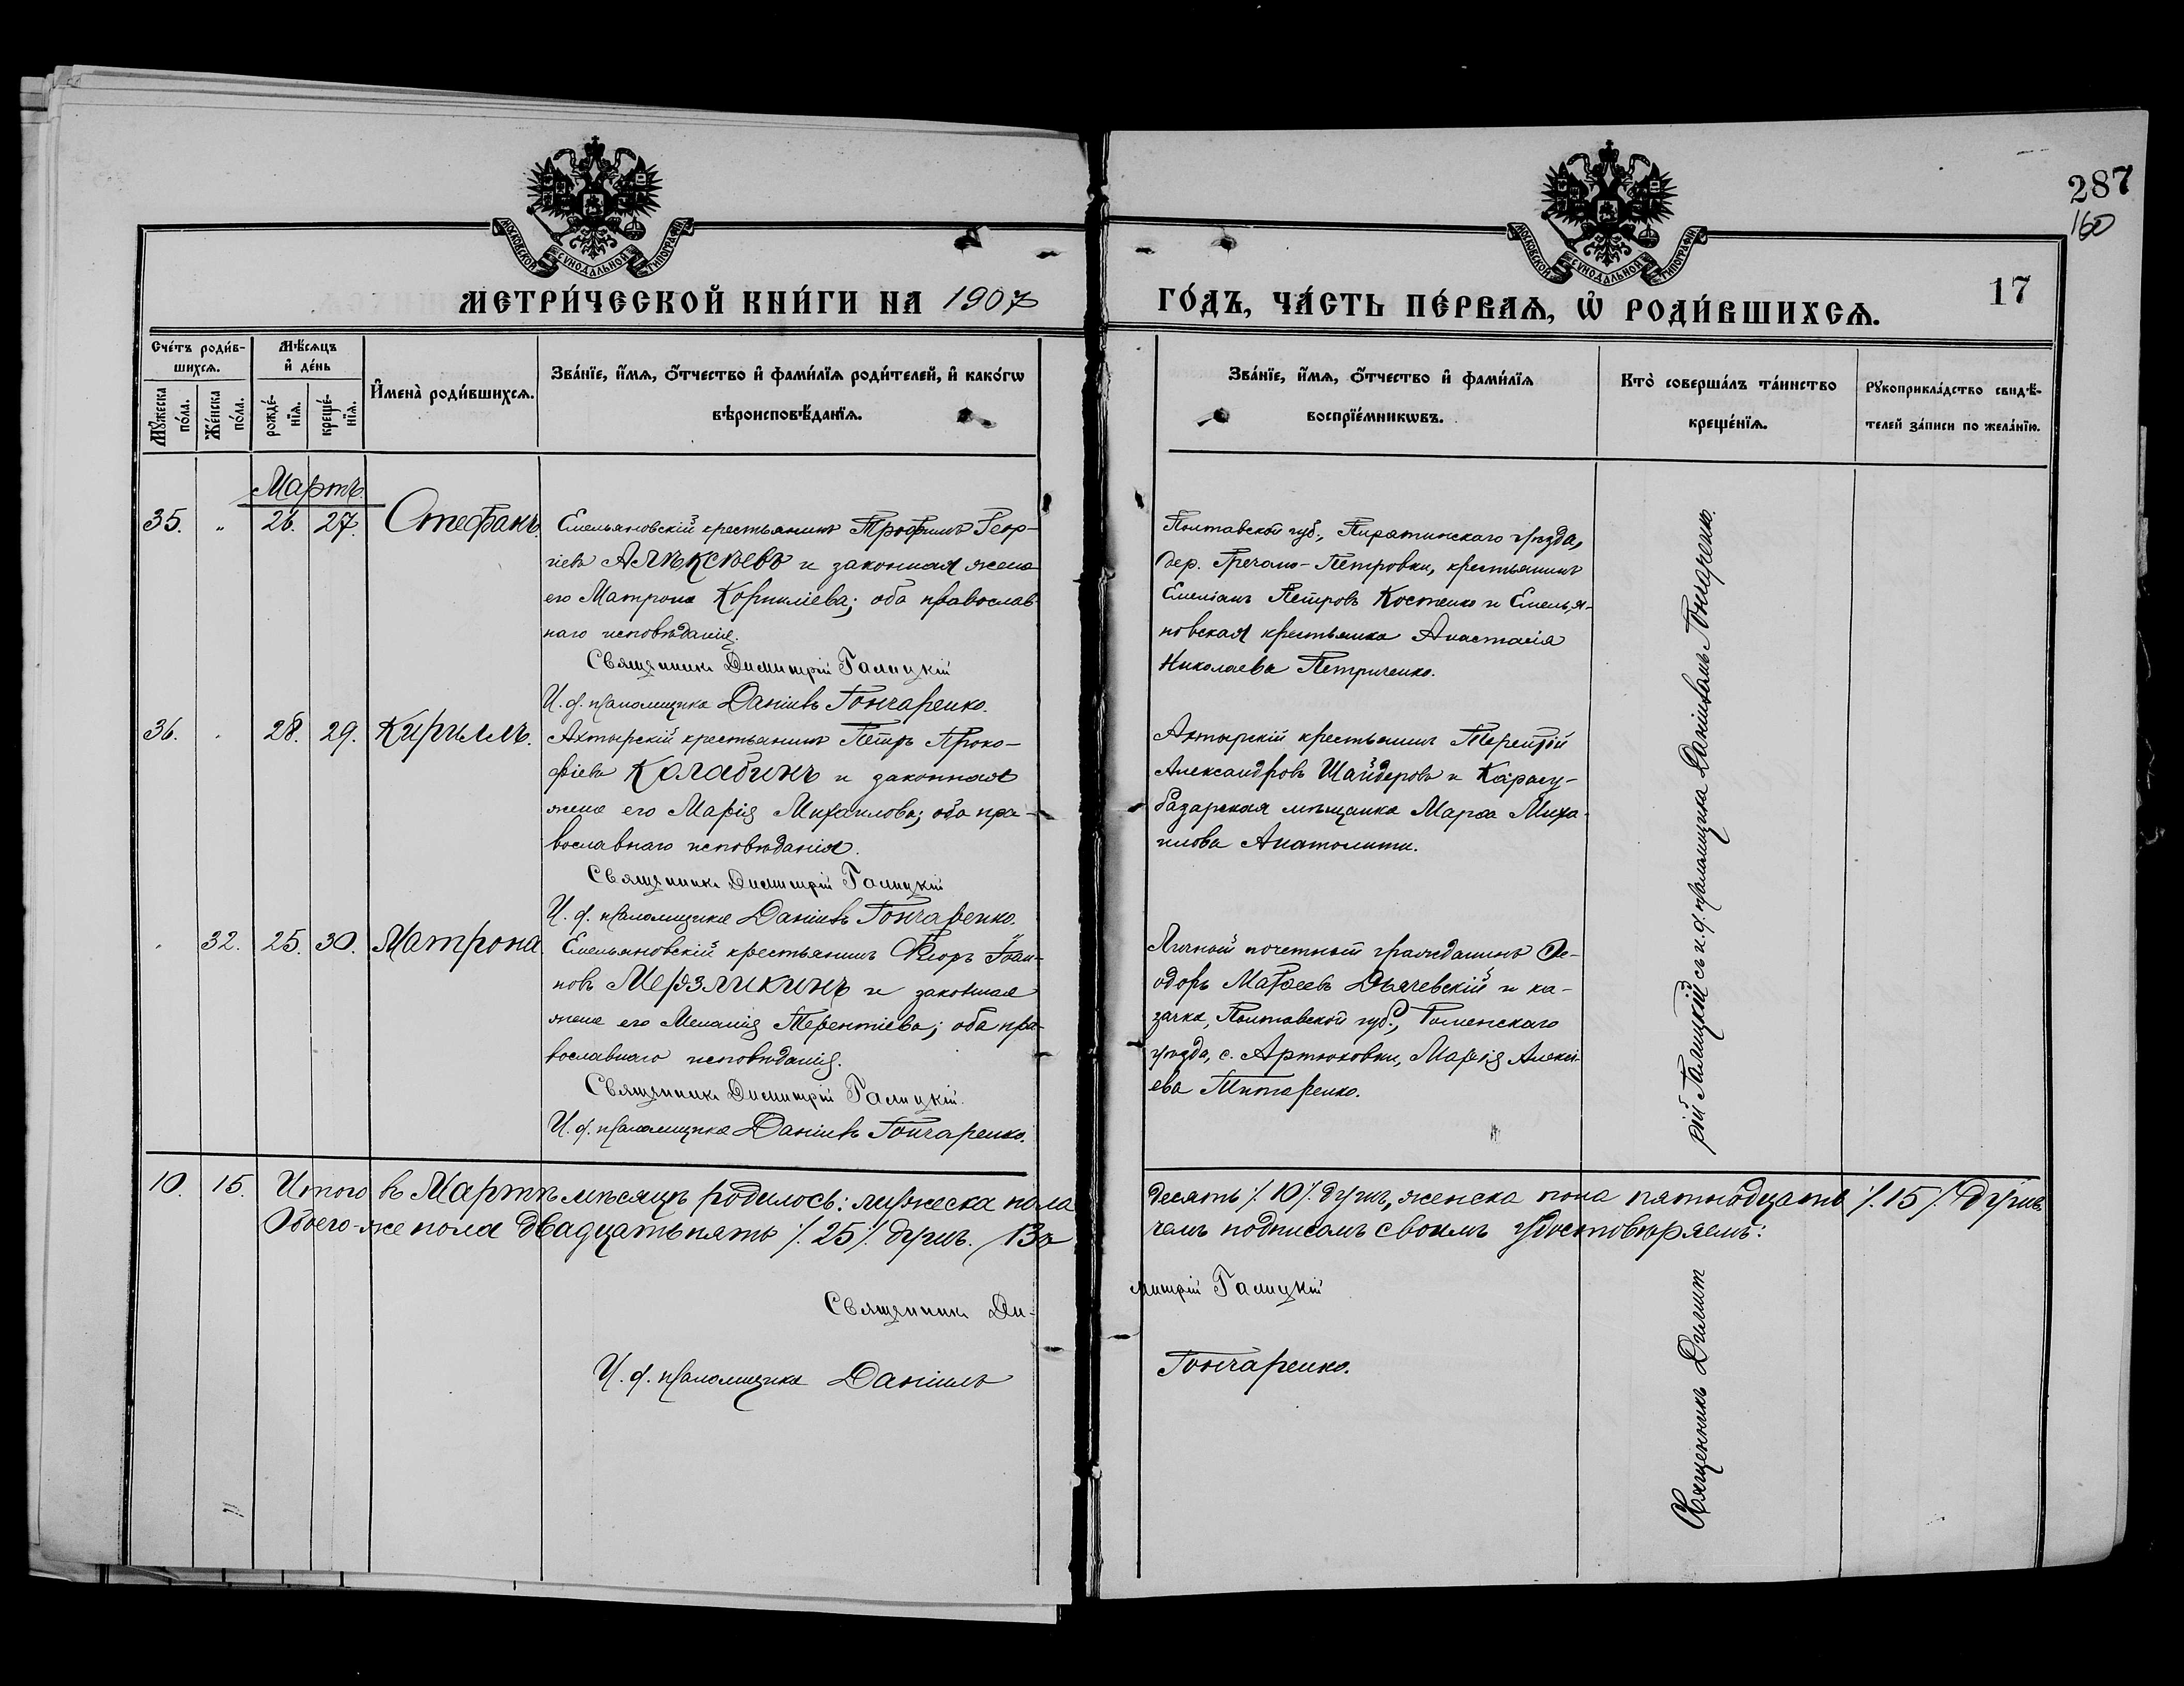 287
160
МОСКОВСКОЙ СѴНОДАЛЬНОЙ ТИПОГРАФІИ
МОСКОВСКОЙ СѴНОДАЛЬНОЙ ТИПОГРАФІИ
МЕТРИ́ЧЕСКОЙ КНИ́ГИ НА 1907
ГО́ДЪ, ЧА́СТЬ ПЕ́РВАѦ, Ѡ҆ РОДИ́ВШИХСѦ.
17
Сче́тъ роди́в-
шихсѧ.
Мꙋ́жеска
по́ла.
Же́нска
по́ла.
Мѣ́сѧцъ
и҆ де́нь
рожде́-
нїѧ.
креще́-
нїѧ.
И҆мена̀ роди́вшихсѧ.
Зва́нїе, и҆́мѧ, ѻ҆́тчество и҆ фами́лїѧ роди́телей, и҆ како́гѡ
вѣроисповѣ́данїѧ.
Зва́нїе, и҆́мѧ, ѻ҆́тчество и҆ фами́лїѧ
воспрїе́мникѡвъ.
Кто̀ соверша́лъ та́инство
креще́нїѧ.
Рꙋкоприкла́дство свидѣ́-
телей за́писи по жела́нїю.
Мартъ.
35. " 26. 27. Стефанъ.
Емельяновскій крестьянинъ Трофимъ Геор-
гіевъ Алѣксѣевъ и законная жена
его Матрона Корниліева; оба православ-
наго исповѣданія.
Священникъ Димитрій Галицкій
И. д. псаломщика Даніилъ Гончаренко.
Полтавской губ., Пирятинскаго уѣзда,
дер. Гречано-Петровки, крестьянинъ
Емеліанъ Петровъ Костенко и Емелья-
новская крестьянка Анастасія
Николаева Петриченко.
36. . 28. 29. Кириллъ.
Ахтырскій крестьянинъ Петръ Проко-
фіевъ Колабинъ и законная
жена его Марія Михаилова; оба пра-
вославнаго исповѣданія.
Священникъ Димитрій Галицкій
И. д. псаломщика Даніилъ Гончаренко.
Ахтырскій крестьянинъ Терентій
Александровъ Шайдеровъ и Карасу-
базарская мѣщанка Марѳа Миха-
илова Анатолити.
. 32. 25. 30. Матрона.
Емельяновскій крестьянинъ Ѳеоръ Іоан-
новъ Мерзликинъ и законная
жена его Меланія Терентіева; оба пра-
вославнаго исповѣданія.
Священникъ Димитрій Галицкій.
И. д. псаломщика Даніилъ Гончаренко.
Личный почетный гражданинъ Ѳе-
одоръ Матѳеевъ Дьячевскій и ка-
зачка, Полтавской губ., Роменскаго
уѣзда, с. Артюховки, Марія Алексі-
ева Титаренко.
Священникъ Димит
рій Галицкій съ и. д. псаломщика Даніиломъ Гончаренко.
10. 15. Итого въ Мартѣ мѣсяцѣ родилось: мужеска пола
десять ./. 10 ./. душъ, женска пола пятнадцать ./. 15 ./. душъ.
Обоего-же пола двадцать пять ./. 25 ./. душъ. Въ
чемъ подписомъ своимъ удостовѣряемъ:
Священникъ Ди-
митрій Галицкій
И. д. псаломщика Даніилъ
Гончаренко.